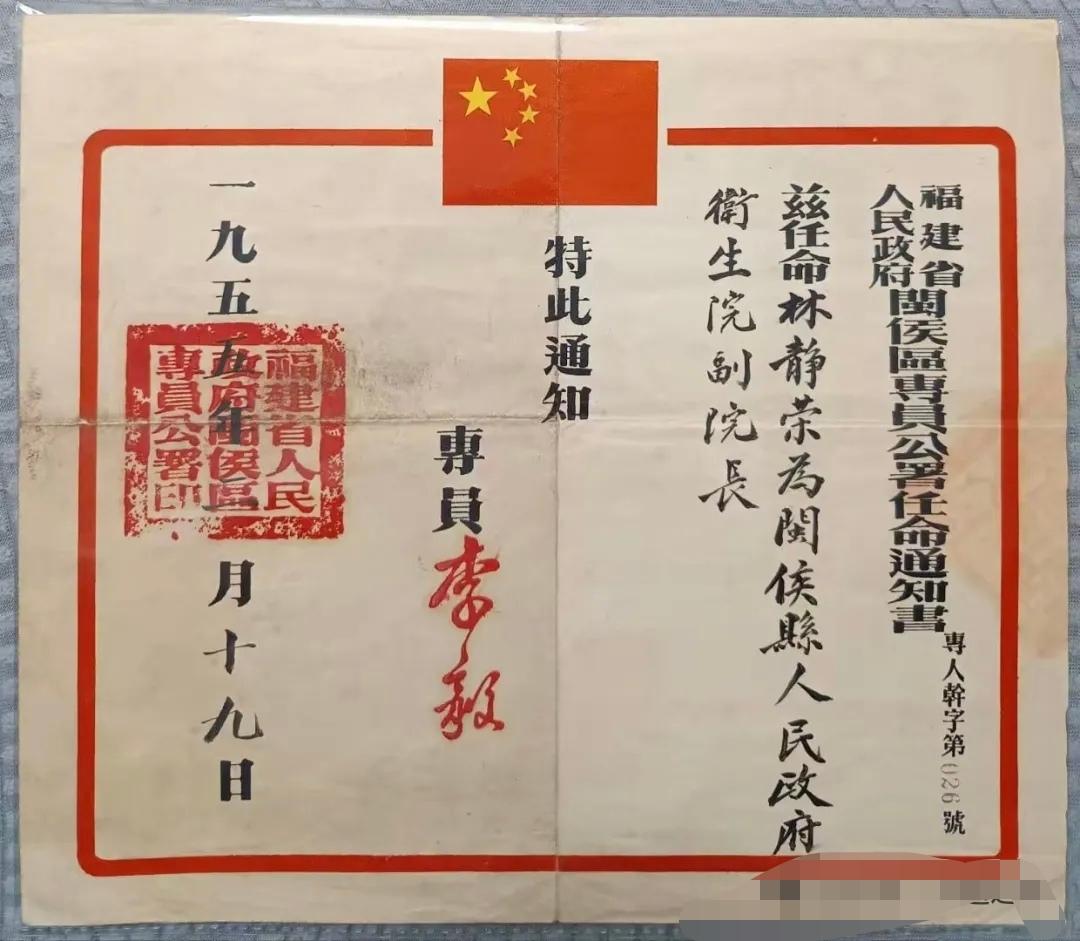 福建省人民政府閩侯區專員公署任命通知書
專人幹字第026號
茲任命林静荣为閩侯縣人民政府
衛生院副院長
特此通知
專員李毅
一九五五年二月十九日
福建省人民
政府閩侯區
專員公署印